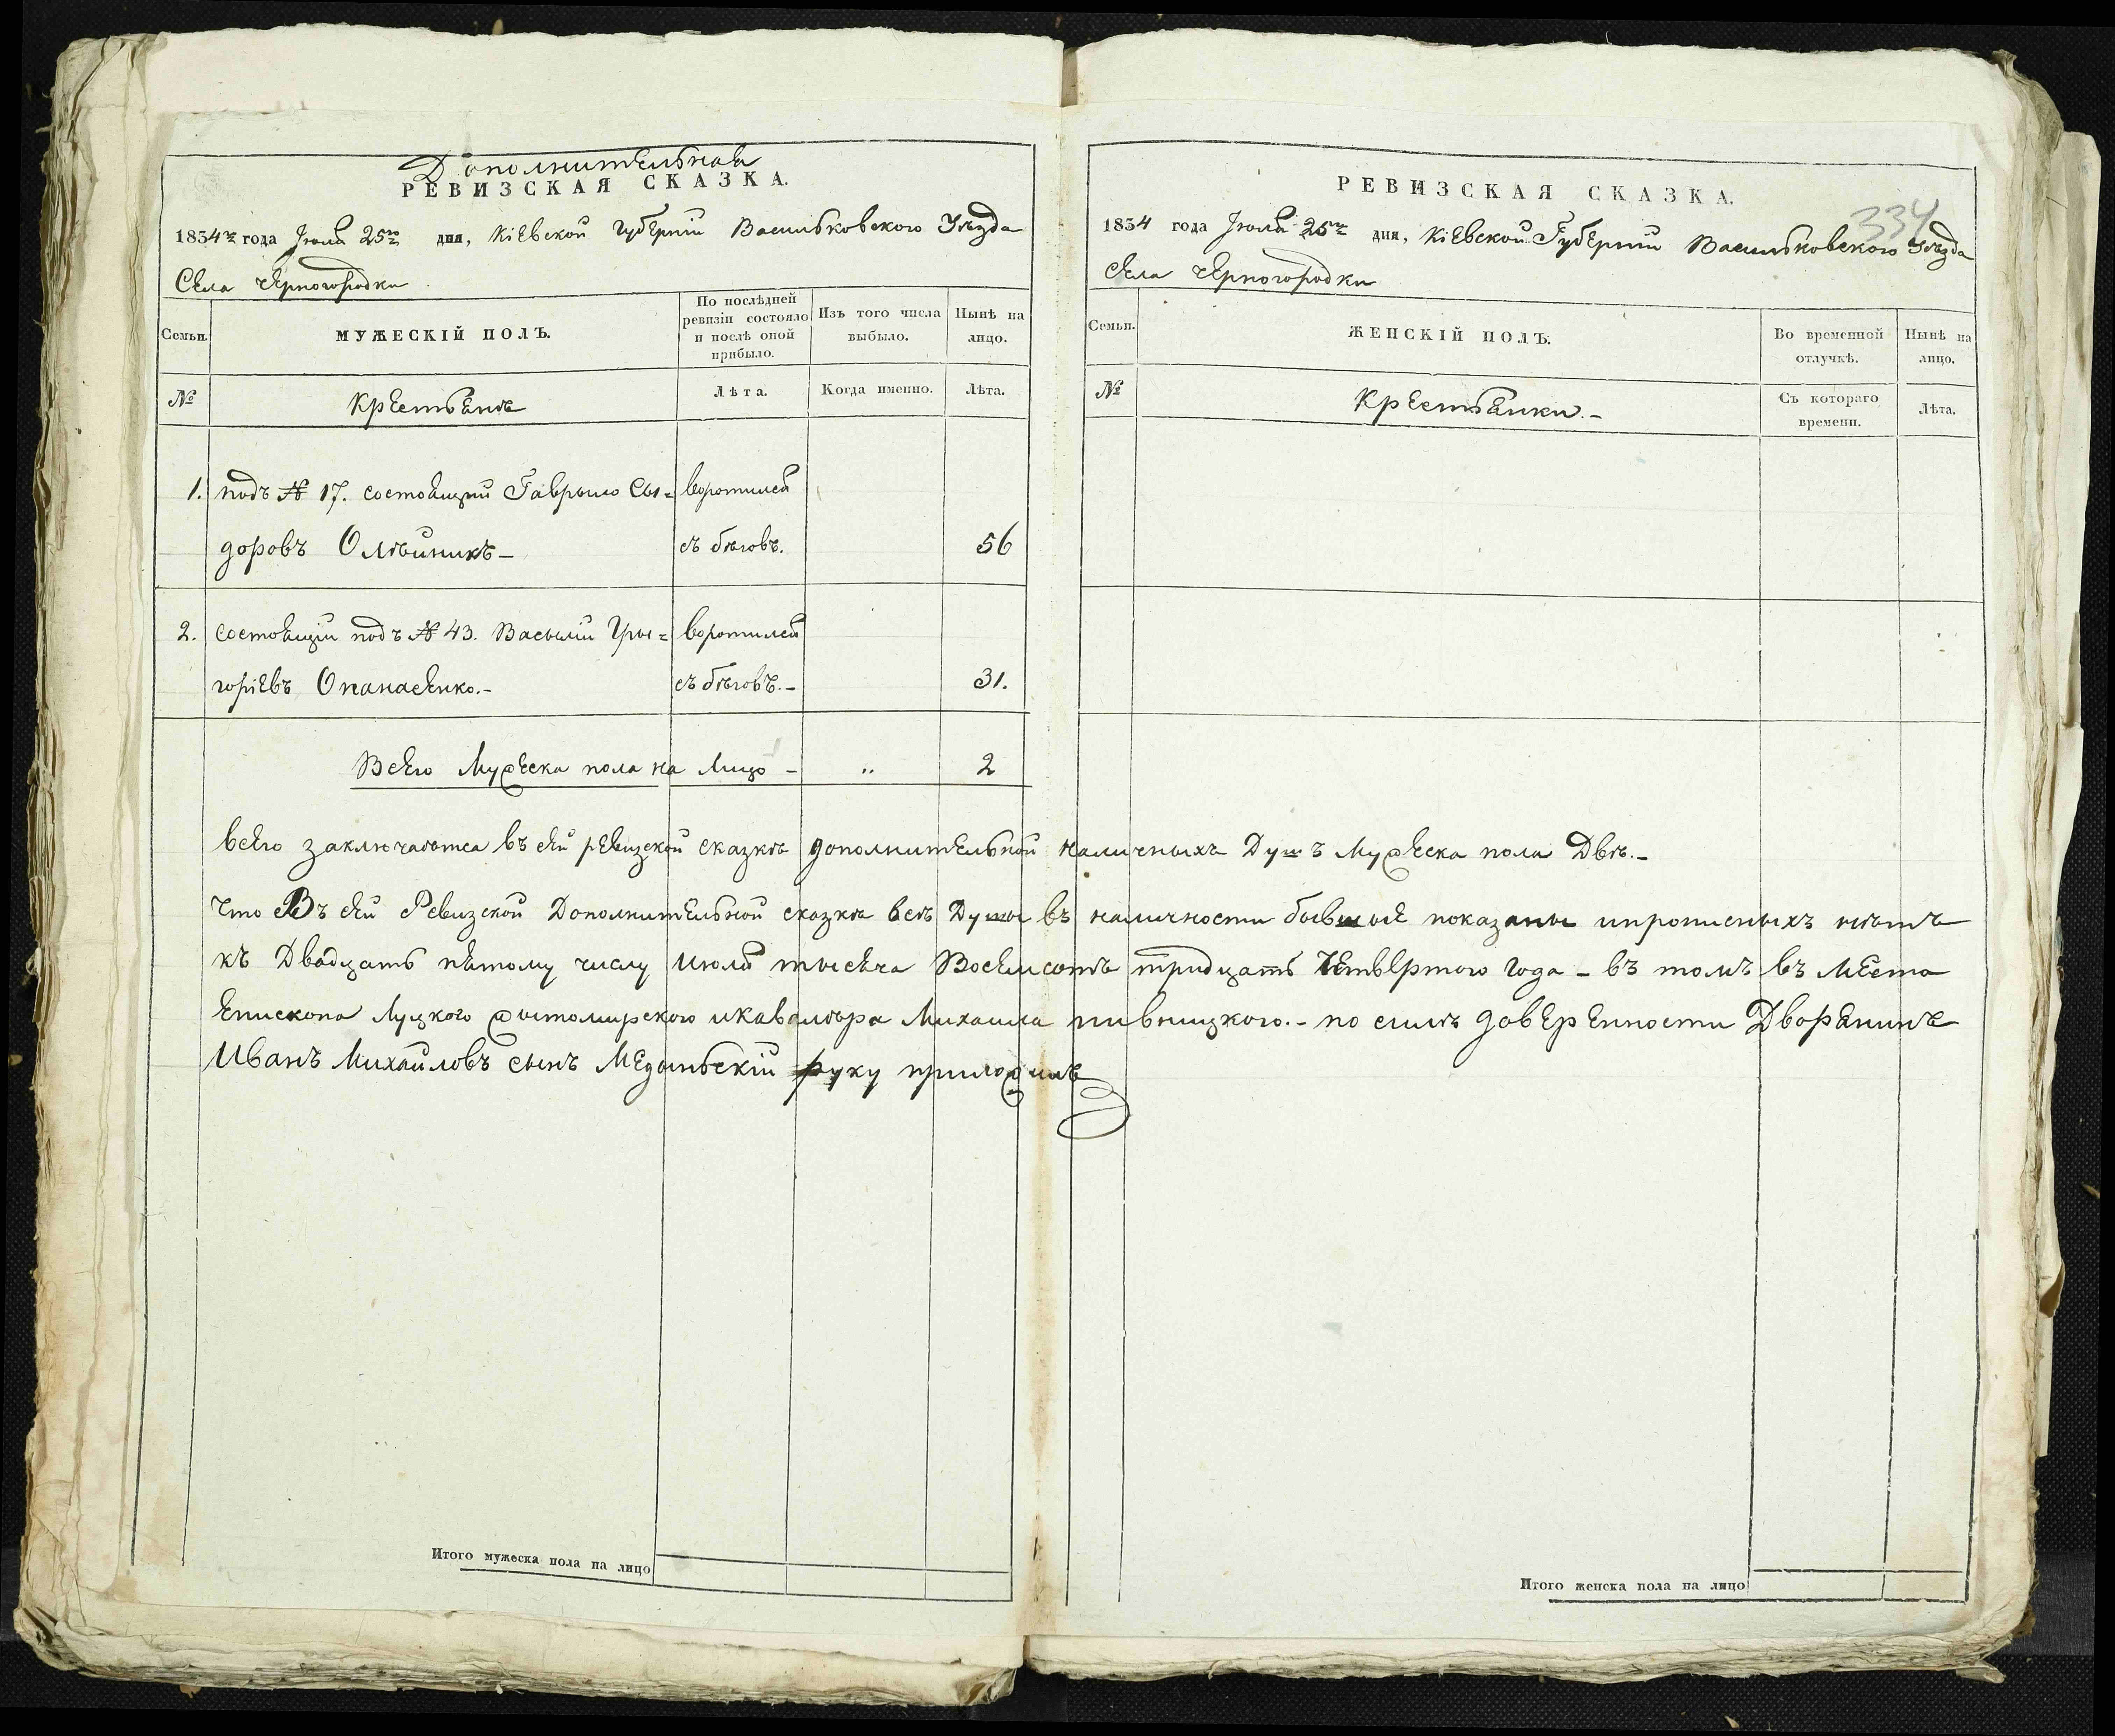 Дополнительная
РЕВИЗСКАЯ СКАЗКА.
1834го года Іюля 25го дня, Кіевской Губерніи Васильковского Уѣзда
Села Черногородки
Семьи.
МУЖЕСКІЙ ПОЛЪ.
По послѣдней ревизіи состояло и послѣ оной прибыло.
Изъ того числа выбыло.
Нынѣ на лицо.
№
Крестьяне
Лѣта.
Когда именно.
Лѣта.
1. подъ № 17. состоящій Гаврыло Сы= воротился
доровъ Олѣйникъ – съ бѣговъ. 56
2. состоящій подъ № 43. Васылій Гры= воротился
горіевъ Опанасенко.– съ бѣговъ.– 31.
Всего Мужеска пола на лицо – „ 2
РЕВИЗСКАЯ СКАЗКА.
334
1834 года Іюля 25го дня, Кіевской Губерніи Васильковского Уѣзда
села Черногородки
Семьи.
ЖЕНСКІЙ ПОЛЪ.
Во временной отлучкѣ.
Нынѣ на лицо.
№
Крестьянки.–
Съ котораго времени.
Лѣта.
всего заключаѣтса въ сей ревизской сказкѣ дополнительной наличныхъ Душъ Мужеска пола Двѣ.–
Что Въ сей Ревизской Дополнительной сказкѣ всѣ Душы въ наличности бывшые показаны ипрописныхъ нѣтъ
къ Двадцать пятому числу Июля тысяча Восемсотъ тридцать Четвертого года – въ томъ въ место
Епископа Луцкого Жытомирского икавалѣра Михаила пивницкого.– по силѣ доверенности Дворянинъ
Иванъ Михайловъ сынъ Медыньскій руку приложилъ
Итого мужеска пола на лицо
Итого женска пола на лицо